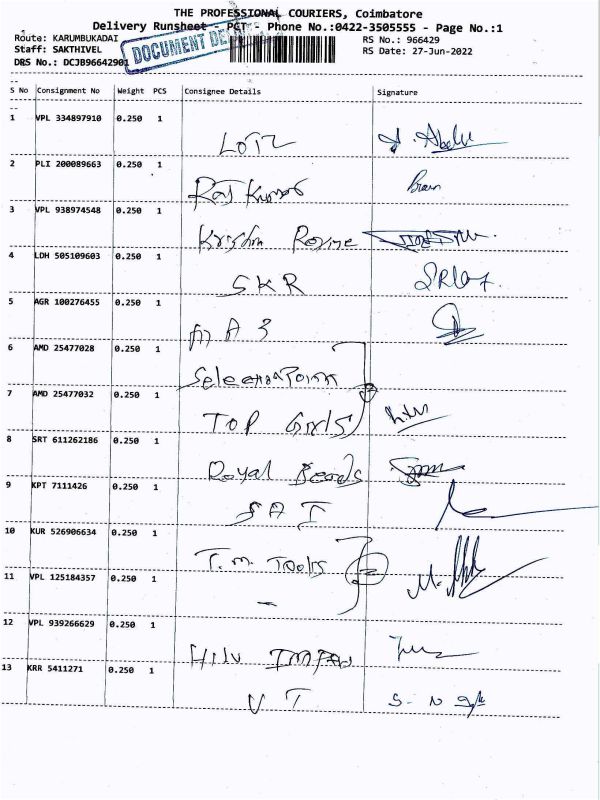 THE PROFESSIONAL COURIERS, Coimbatore
Delivery Runsheet - PCT - Phone No.:0422-3505555 - Page No.:1
Route: KARUMBUKADAI RS No.: 966429
Staff: SAKTHIVEL RS Date: 27-Jun-2022
DRS No.: DCJB96642901
DOCUMENT
S No Consignment No Weight PCS Consignee Details Signature
1 VPL 334897910 0.250 1
2 PLI 200089663 0.250 1
Raj Kumar
3 VPL 938974548 0.250 1
4 LDH 505109603 0.250 1
SKR
5 AGR 100276455 0.250 1
6 AMD 25477028 0.250 1
Selection Point
7 AMD 25477032 0.250 1
TOP Girls
8 SRT 611262186 0.250 1
Royal Beads
9 KPT 7111426 0.250 1
10 KUR 526906634 0.250 1
T.M. Tools
11 VPL 125184357 0.250 1
12 VPL 939266629 0.250 1
13 KRR 5411271 0.250 1
V T